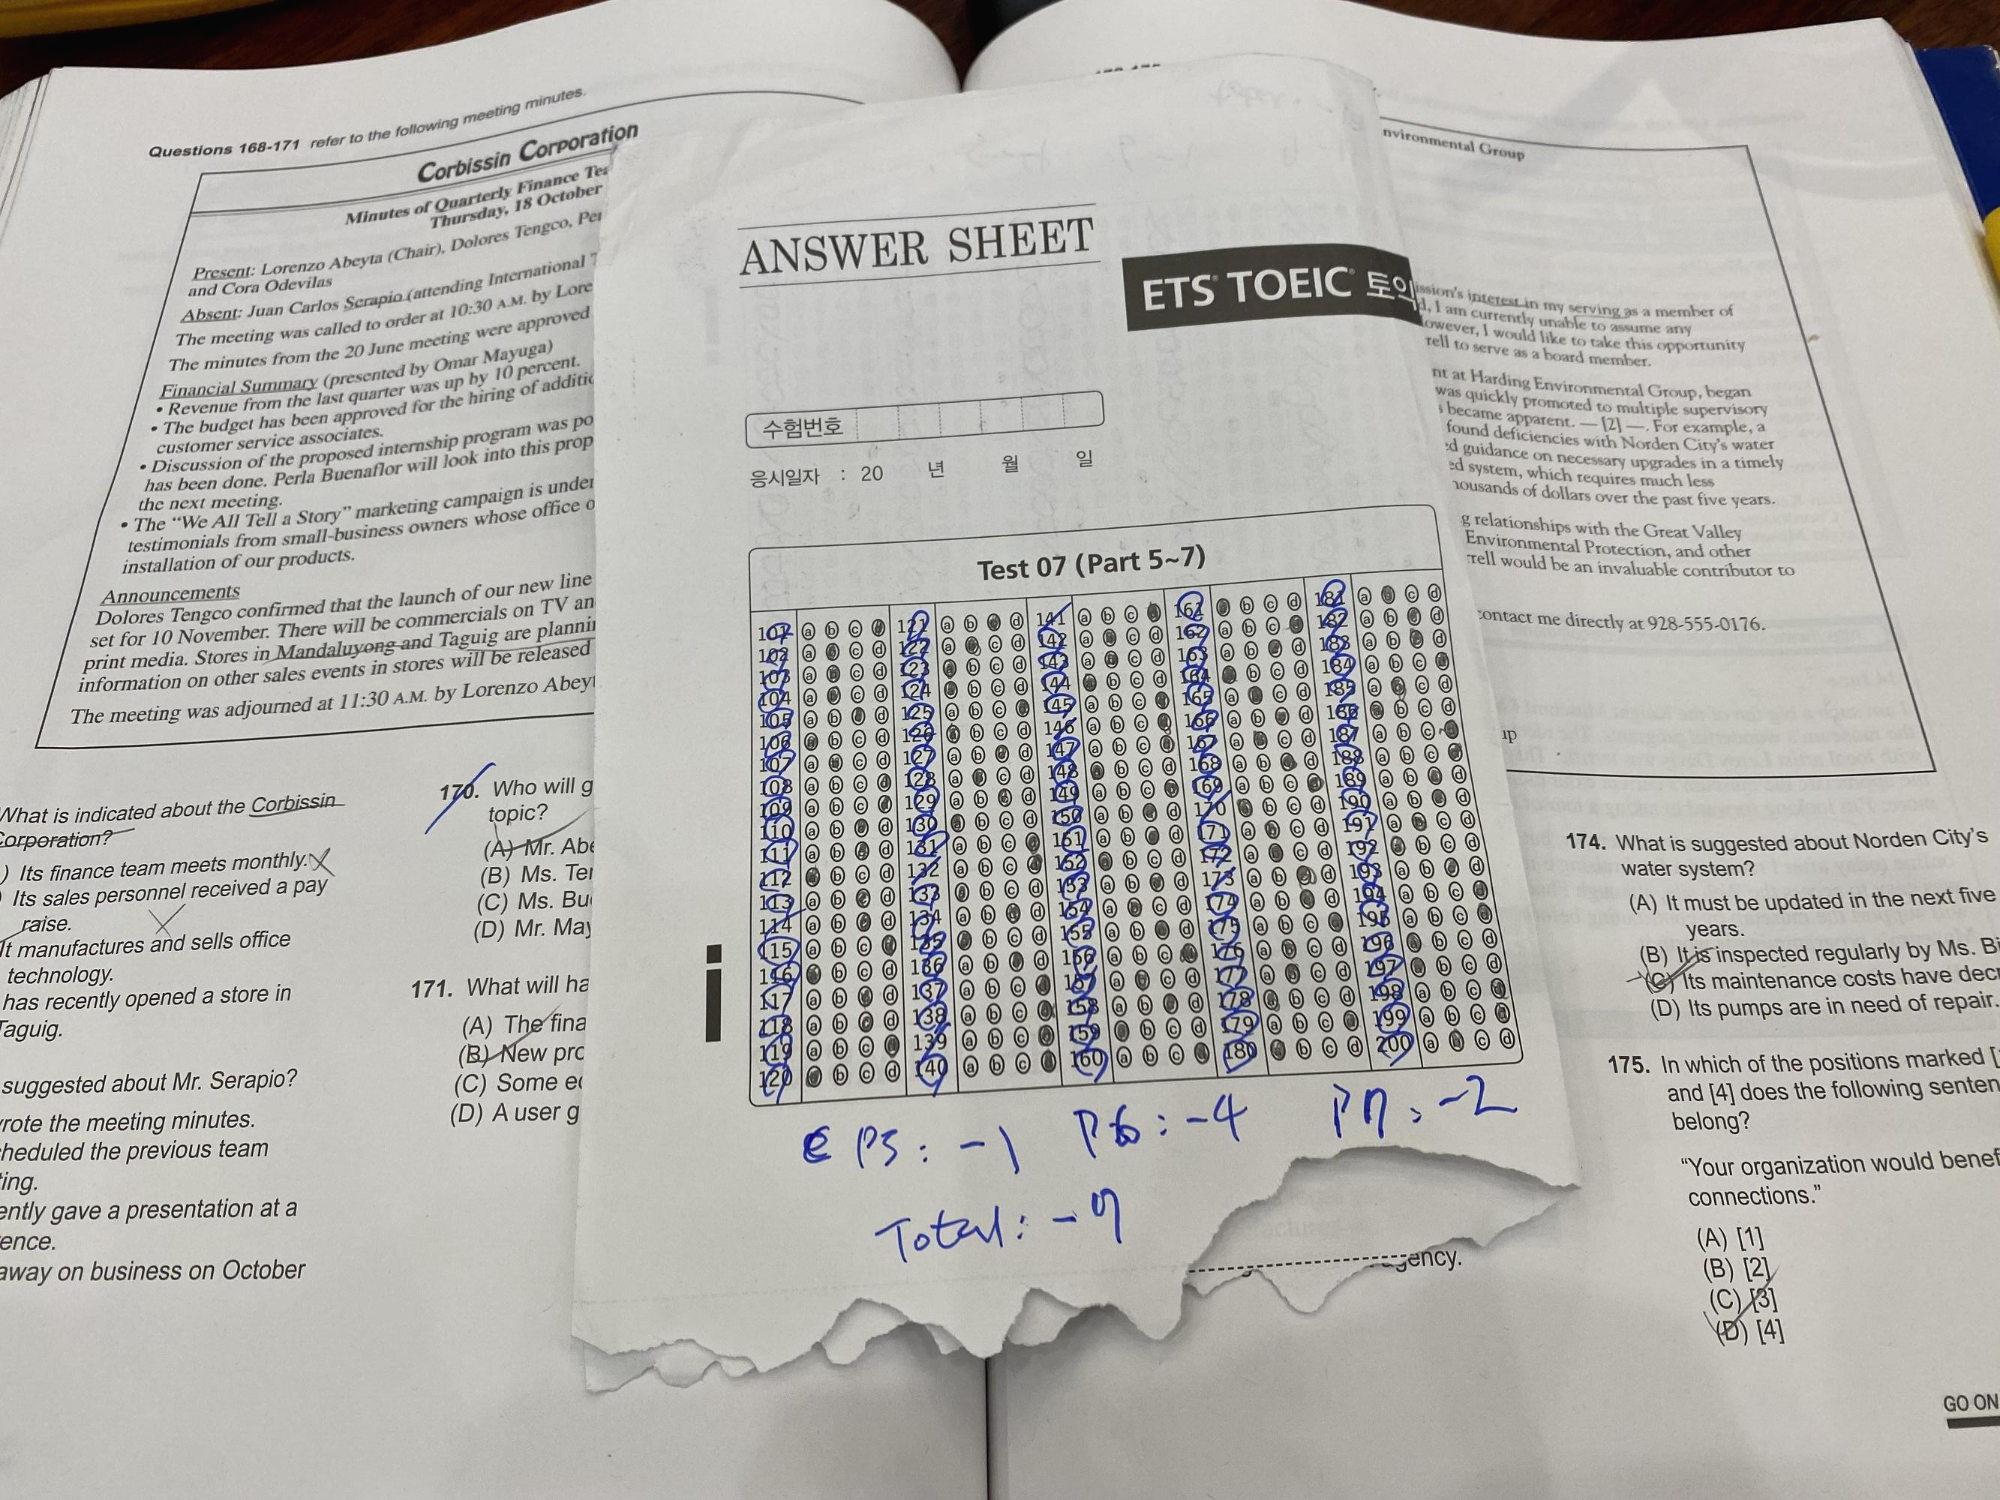 Questions 168-171 refer to the following meeting minutes.
Corbissin Corporation
Minutes of Quarterly Finance
Thursday, 18 October
Present: Lorenzo Abeyta (Chair), Dolores Tengco,
and Cora Odevilas
Absent: Juan Carlos Serapio (attending International
The meeting was called to order at 10:30 A.M. by
The minutes from the 20 June meeting were approved
Financial Summary (presented by Omar Mayuga)
• Revenue from the last quarter was up by 10 percent.
• The budget has been approved for the hiring of
customer service associates.
• Discussion of the proposed internship program was
has been done. Perla Buenaflor will look into this
the next meeting.
• The “We All Tell a Story” marketing campaign is
testimonials from small-business owners whose office
installation of our products.
Announcements
Dolores Tengco confirmed that the launch of our new line
set for 10 November. There will be commercials on TV
print media. Stores in Mandaluyong and Taguig are
information on other sales events in stores will be released
The meeting was adjourned at 11:30 A.M. by Lorenzo
What is indicated about the Corbissin
Corporation?
) Its finance team meets monthly.
Its sales personnel received a pay
raise.
It manufactures and sells office
technology.
has recently opened a store in
Taguig.
suggested about Mr. Serapio?
the meeting minutes.
the previous team
gave a presentation at a
away on business on October
170. Who will
topic?
(A) Mr.
(B) Ms.
(C) Ms.
(D) Mr.
171. What will
(A) The
(B) New
(C) Some
(D) A user
ANSWER SHEET
ETS TOEIC 토익
수험번호
응시일자 : 20 년 월 일
Test 07 (Part 5~7)
101 a b c 121 a b d 141 a b c 161 b c d 181 a c d
102 a c d 122 a c d 142 a c d 162 a b c 182 a b d
103 a c d 123 b c d 143 a c d 163 a b d 183 a b d
104 a c d 124 b c d 144 b c d 164 a b c d 184 a b c
105 a b d 125 a b c 145 a b c 165 a c d 185 a c d
106 b c d 126 b c d 146 a b c 166 a b d 186 b c d
107 a c d 127 a b d 147 a b c 167 a c d 187 a b c
108 a b c 128 a c d 148 b c d 168 a b d 188 a b c
109 a b c 129 a b d 149 a c d 169 a b c 189 a b d
110 a b d 130 b c d 150 a b d 170 b c d 190 a b d
111 a b d 131 a b c 151 a b d 171 a c d 191 a c d
112 b c d 132 a b c 152 b c d 172 a c d 192 b c d
113 a b d 133 b c d 153 a b d 173 a b d 193 a b d
114 a b d 134 a b d 154 a c d 174 a b d 194 a b c
115 a b c 135 b c d 155 a b d 175 a b c 195 a b c
116 b c d 136 a b d 156 a b c 176 a b d 196 b c d
117 a b d 137 a b c 157 a c d 177 a c d 197 b c d
118 a b d 138 a b c 158 a b d 178 b c d 198 a b c
119 a b c 139 a b c 159 b c d 179 a b c 199 a b c
120 b c d 140 a b c 160 a b c 180 b c d 200 a c d
P5: -1 P6: -4 P7: -2
Total: -7
Environmental Group
interest in my serving as a member of
I am currently unable to assume any
I would like to take this opportunity
to serve as a board member.
at Harding Environmental Group, began
was quickly promoted to multiple supervisory
became apparent. — [2] —. For example, a
found deficiencies with Norden City's water
guidance on necessary upgrades in a timely
system, which requires much less
of dollars over the past five years.
relationships with the Great Valley
Environmental Protection, and other
would be an invaluable contributor to
contact me directly at 928-555-0176.
174. What is suggested about Norden City's
water system?
(A) It must be updated in the next five
years.
(B) It is inspected regularly by Ms.
(C) Its maintenance costs have
(D) Its pumps are in need of repair.
175. In which of the positions marked
and [4] does the following
belong?
“Your organization would
connections.”
(A) [1]
(B) [2]
(C) [3]
(D) [4]
GO ON